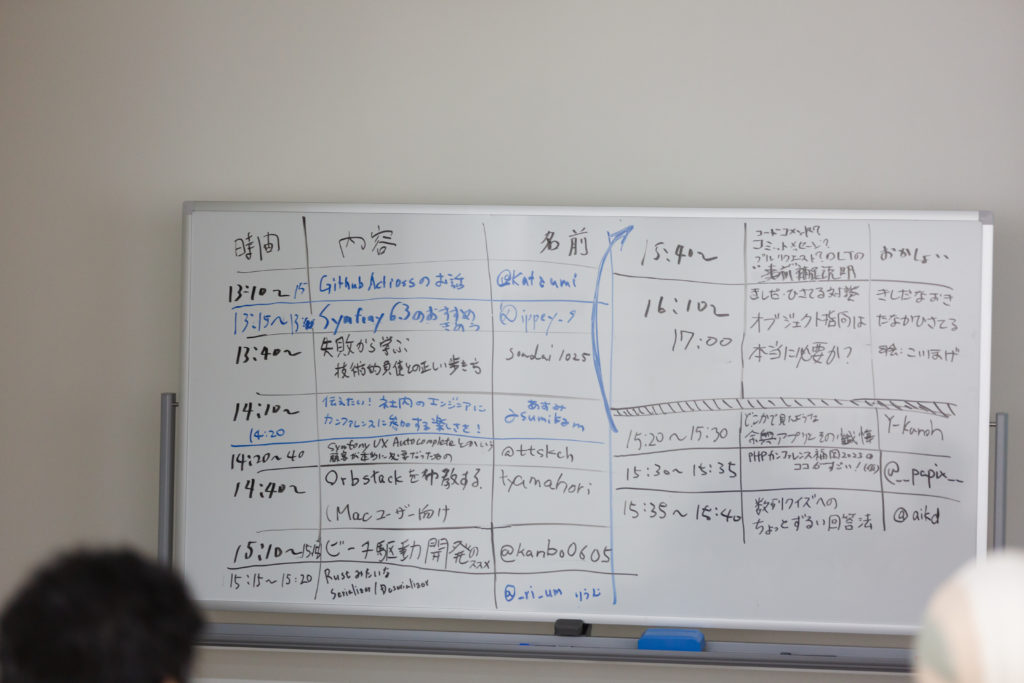 時間 内容 名前
13:10〜15 Github Actionsのお話 @Katzumi
13:15〜13: Symfony 6.3のおすすめ @ippey_s
きのう
13:40〜 失敗から学ぶ soudai1025
技術的負債との正しい歩き方
14:10〜 伝えたい！社内のエンジニアに あすみ
14:20 カンファレンスに参加する楽しさを！ asumikam
14:20〜40 Symfony UX Autocompleteとかいう @ttskch
顧客が本当に必要だったもの
14:40〜 Orbstackを布教する tyamahori
(Macユーザー向け
15:10〜15 ビーチ駆動開発の @kanbo0605
ススメ
15:15〜15:20 Rustみたいな
Serializer/Deserializer @_ri_um りうむ
15:40〜 コードコメント？
コミットメッセージ？
プルリクエスト？のLTの おかしょい
事前補足説明
16:10〜 きしだ・ひさてる対談 きしだなおき
17:00 オブジェクト指向は たなかひさてる
本当に必要か？ 司会:こいほげ
15:20〜15:30 どこかで見たような Y-Kanoh
余興アプリとその裏事情
15:30〜15:35 PHPカンファレンス福岡2023の @__papix__
ココがすごい！
15:35〜15:40 数列クイズへの @aikd
ちょっとずるい回答法